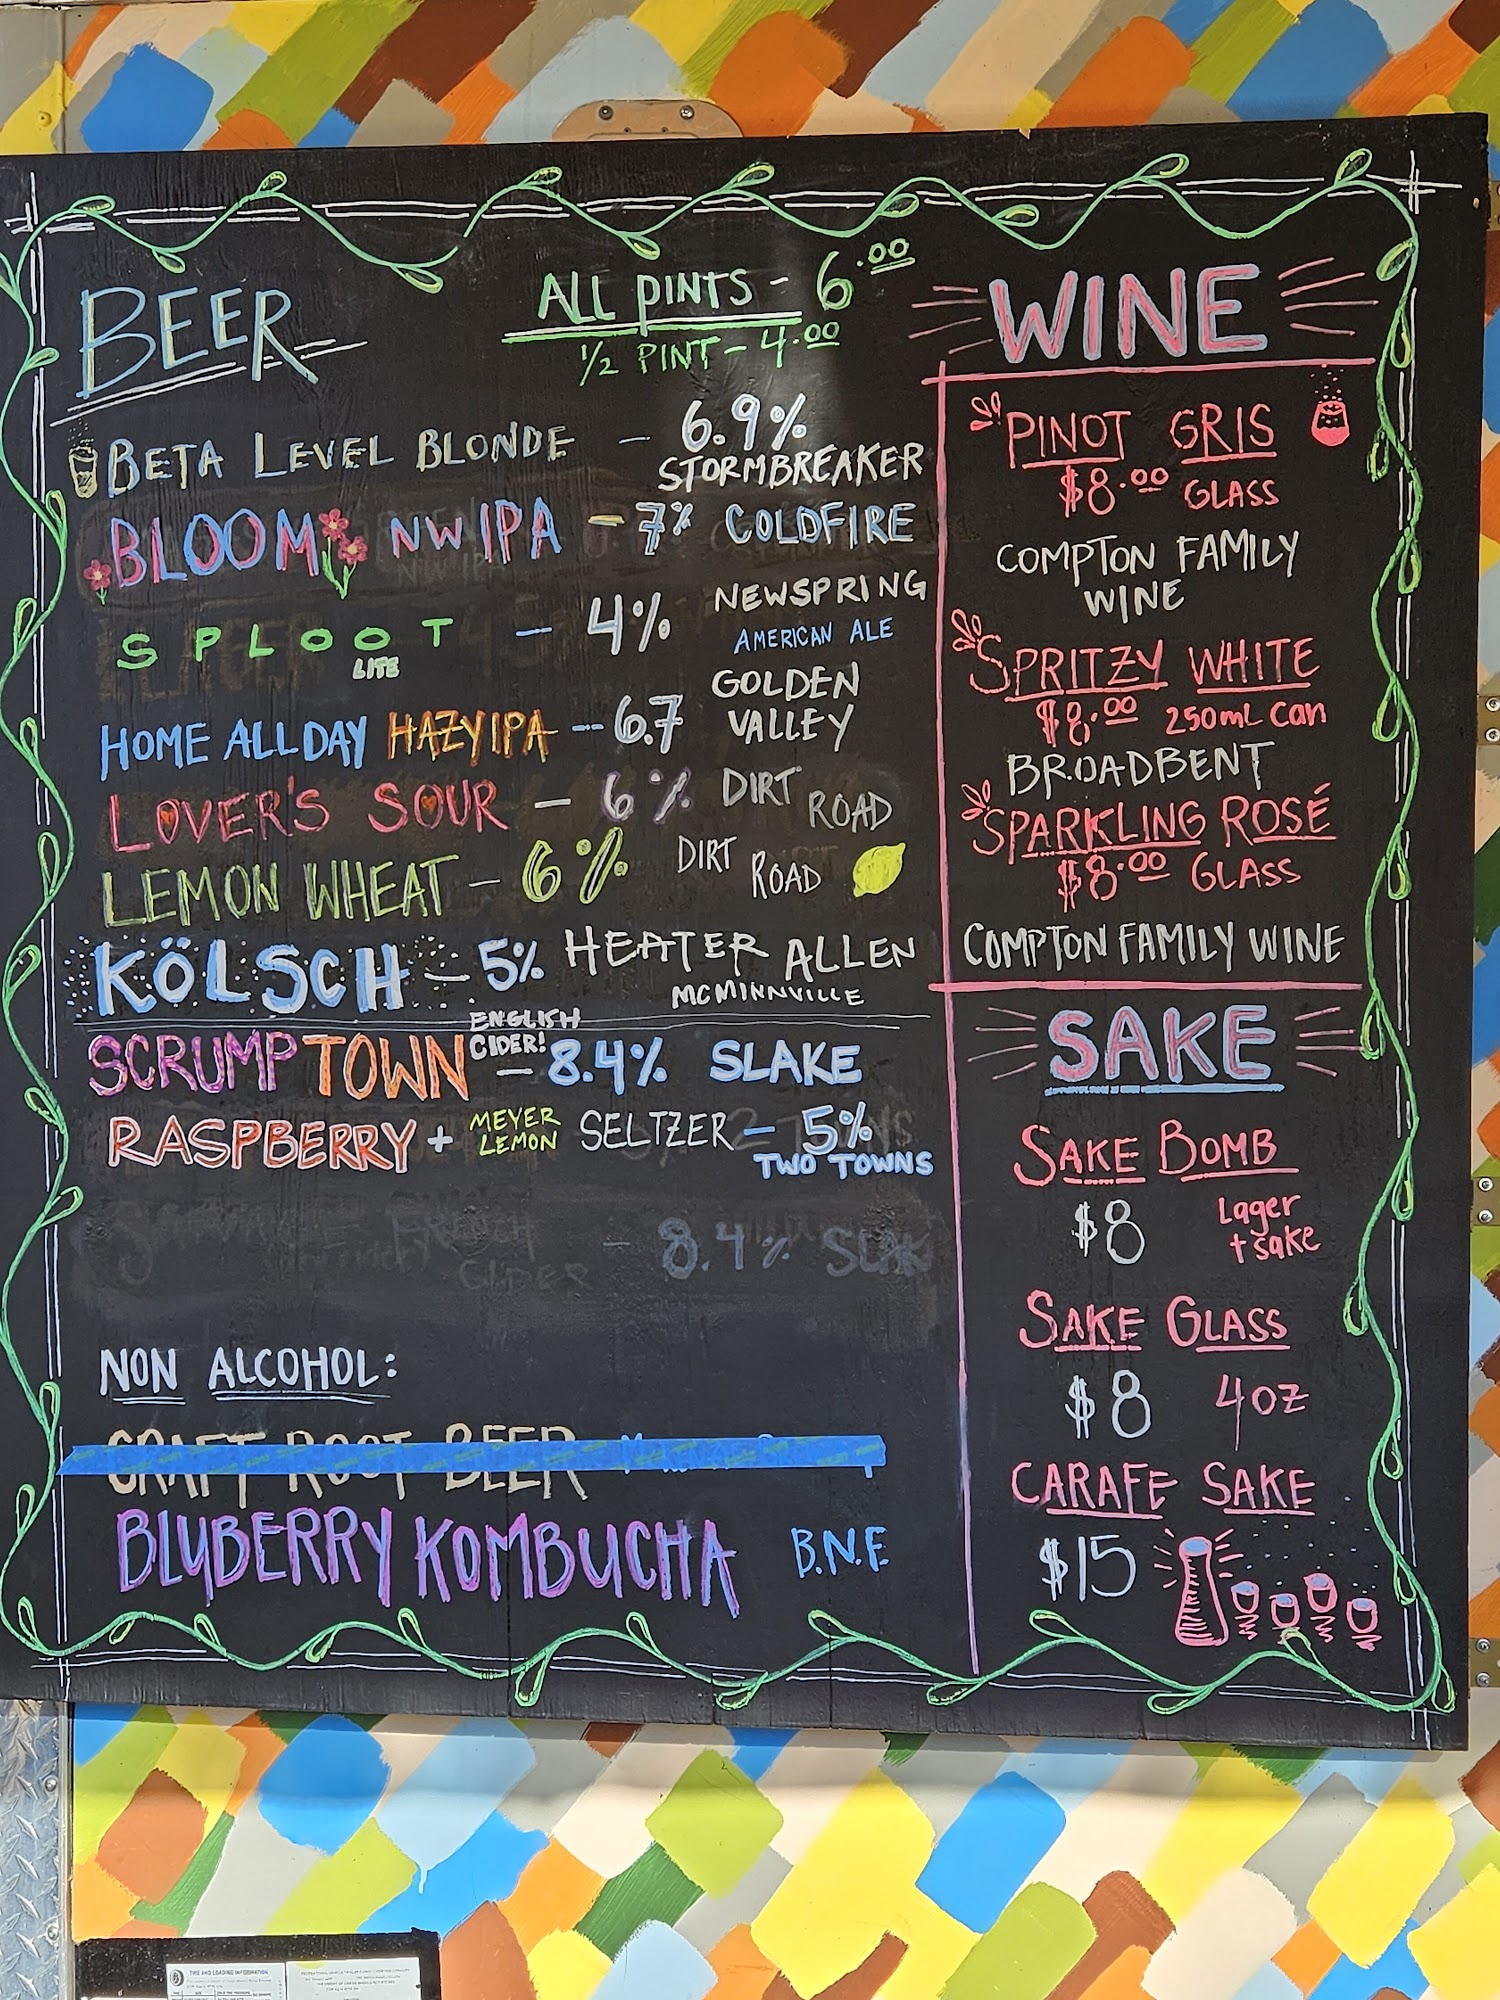 BEER
ALL PINTS - 6.00
1/2 PINT - 4.00
BETA LEVEL BLONDE - 6.9%
STORMBREAKER
BLOOM NW IPA - 7% COLDFIRE
SPLOOT - 4% NEWSPRING
LITE AMERICAN ALE
HOME ALL DAY HAZY IPA -- 6.7 GOLDEN
VALLEY
LOVER'S SOUR - 6% DIRT ROAD
LEMON WHEAT - 6% DIRT ROAD
KÖLSCH - 5% HEATER ALLEN
MCMINNVILLE
SCRUMPTOWN ENGLISH
CIDER! - 8.4% SLAKE
RASPBERRY + MEYER
LEMON SELTZER - 5%
TWO TOWNS
CIDER - 8.4% SLAK
NON ALCOHOL:
CRAFT ROOT BEER
BLUBERRY KOMBUCHA B.N.F.
WINE
PINOT GRIS
$8.00 GLASS
COMPTON FAMILY
WINE
SPRITZY WHITE
$8.00 250mL can
BROADBENT
SPARKLING ROSÉ
$8.00 GLASS
COMPTON FAMILY WINE
SAKE
SAKE BOMB
$8 Lager
+ sake
SAKE GLASS
$8 4oz
CARAFE SAKE
$15
TIRE AND LOADING INFORMATION